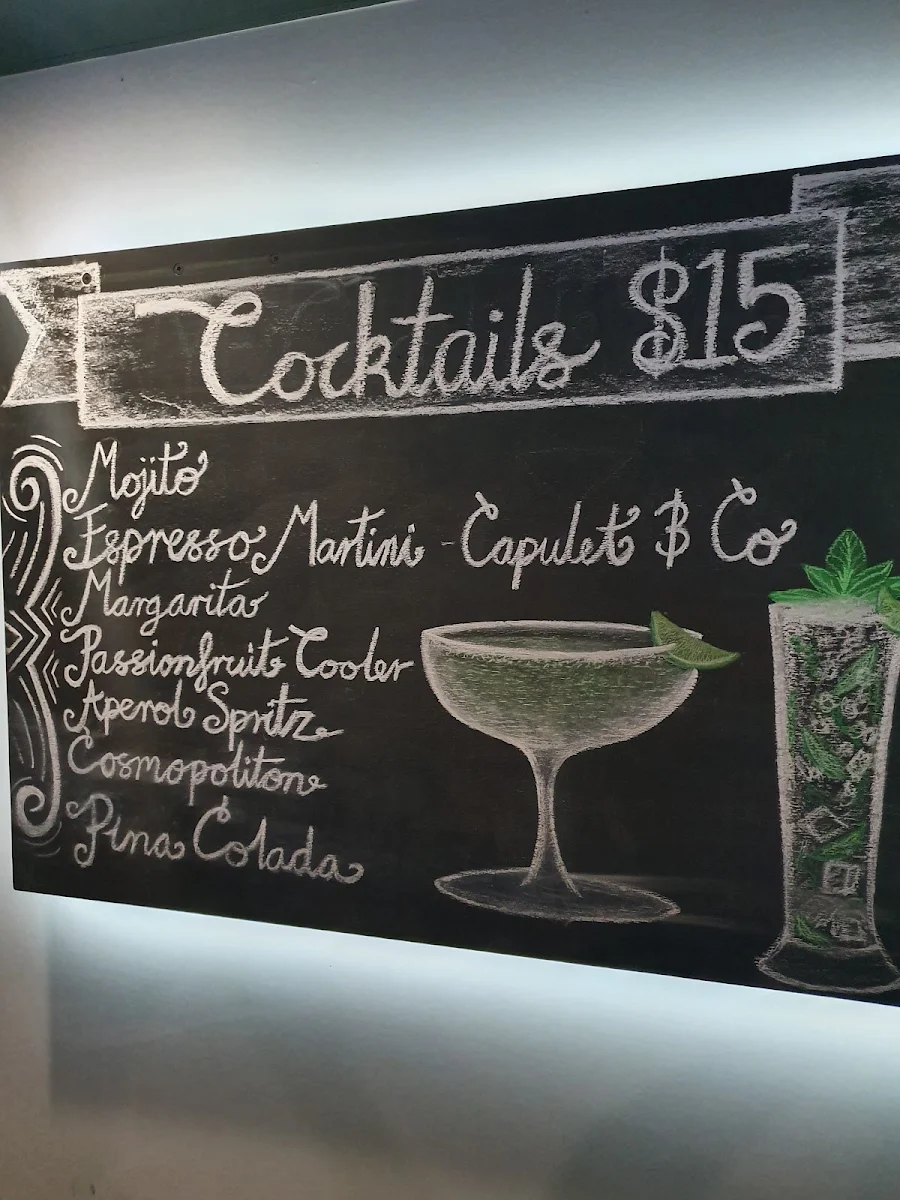 Cocktails $15
Mojito
Espresso Martini - Capulet & Co
Margarita
Passionfruit Cooler
Aperol Spritz
Cosmopoliton
Pina Colada